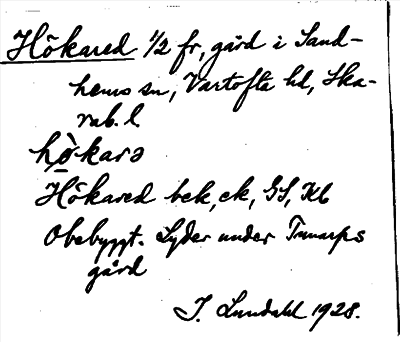 Hökared 1/2 fr, gård i Sand-
hems sn, Vartofta hd, Ska-
rab. l
hø̀karə
Hökared bek, ek, GS, Kb
Obebyggt. Lyder under
gård
J. Lundahl 1928.